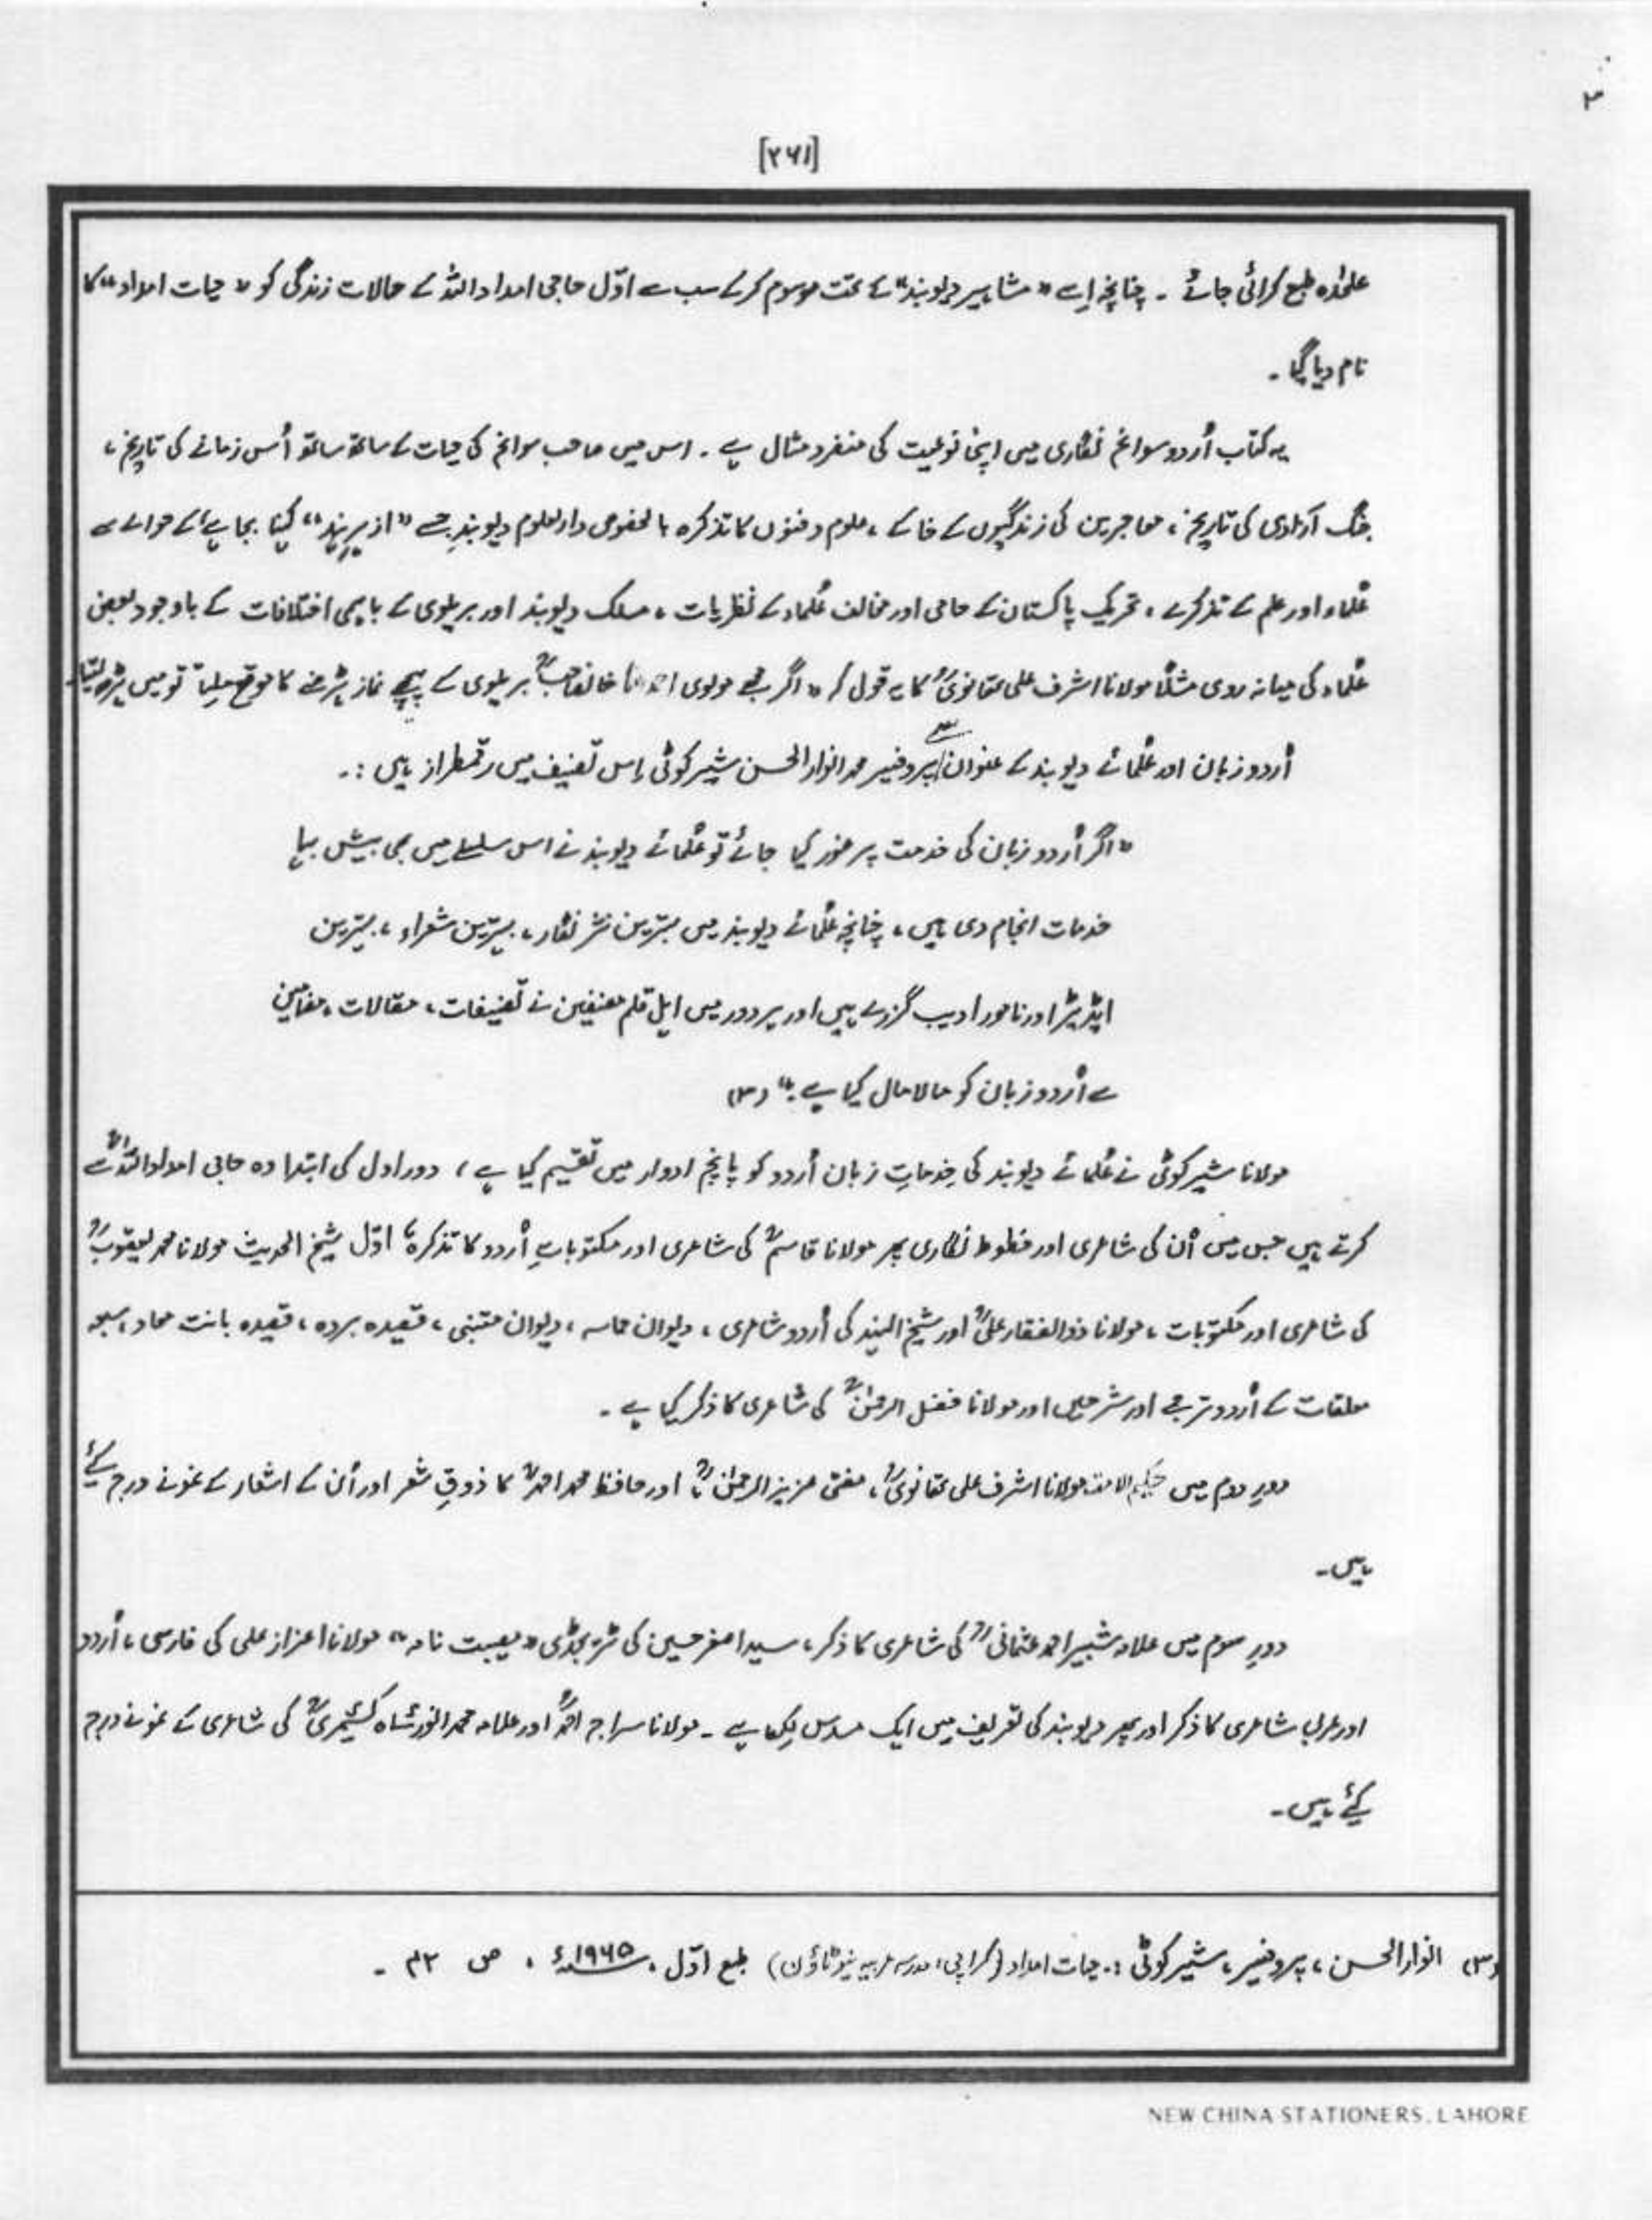 ۳
[۲۶۱]
علیحٰدہ طبع کرائی جائے ۔ چنانچہ اِسے "مشاہیر دیوبند" کے تحت موسوم کرکے سب سے اوّل حاجی امداد اللہؒ کے حالات زندگی کو "حیات امداد" کا
نام دیا گیا ۔
یہ کتاب اُردو سوانح نگاری میں اپنی نوعیت کی منفرد مثال ہے ۔ اس میں صاحب سوانح کی حیات کے ساتھ ساتھ اُس زمانے کی تاریخ ،
جنگ آزادی کی تاریخ ، مہاجرین کی زندگیوں کے خاکے ، علوم و فنون کا تذکرہ بالخصوص دارالعلوم دیوبند جسے "ازہرِ ہند" کہنا بجا ہے کے حوالے سے
عُلماء اور علم کے تذکرے ، تحریک پاکستان کے حامی اور مخالف عُلماء کے نظریات ، مسلک دیوبند اور بریلوی کے باہمی اختلافات کے باوجود بعض
عُلماء کی میانہ روی مثلاً مولانا اشرف علی تھانویؒ کا یہ قول کہ "اگر مجھے مولوی احمد رضا خانصاحبؒ بریلوی کے پیچھے نماز پڑھنے کا موقع ملتا تو میں پڑھ لیتا"
اُردو زبان اور عُلمائے دیوبند کے عنوان سے پروفیسر محمد انوار الحسن شیر کوٹی اِس تصنیف میں رقمطراز ہیں :۔
"اگر اُردو زبان کی خدمت پر غور کیا جائے تو عُلمائے دیوبند نے اس سلسلے میں بھی بیش بہا
خدمات انجام دی ہیں ، چنانچہ عُلمائے دیوبند میں بہترین نثر نگار ، بہترین شعراء ، بہترین
ایڈیٹر اور نامور ادیب گزرے ہیں اور ہر دور میں اہل قلم مصنفین نے تصنیفات ، مقالات ، مضامین
سے اُردو زبان کو مالا مال کیا ہے ۔" (۳)
مولانا شیر کوٹی نے عُلمائے دیوبند کی خدماتِ زبان اُردو کو پانچ ادوار میں تقسیم کیا ہے ، دور اول کی ابتدا وہ حاجی امداد اللہؒ سے
کرتے ہیں جس میں اُن کی شاعری اور خطوط نگاری پھر مولانا قاسمؒ کی شاعری اور مکتوباتِ اُردو کا تذکرہ ، اوّل شیخ الحدیث مولانا محمد یعقوبؒ
کی شاعری اور مکتوبات ، مولانا ذوالفقار علیؒ اور شیخ الہند کی اُردو شاعری ، دیوان حماسہ ، دیوان متنبی ، قصیدہ بردہ ، قصیدہ بانت سعاد ، سبعہ
معلقات کے اُردو ترجمے اور شرحیں اور مولانا فضل الرحمٰنؒ کی شاعری کا ذکر کیا ہے ۔
دورِ دوم میں حکیم الامت مولانا اشرف علی تھانویؒ ، مفتی عزیز الرحمٰنؒ اور حافظ محمد احمدؒ کا ذوقِ شعر اور اُن کے اشعار کے نمونے درج کیے
ہیں ۔
دورِ سوم میں علامہ شبیر احمد عثمانیؒ کی شاعری کا ذکر ، سید اصغر حسین کی ٹریجڈی "مصیبت نامہ" مولانا اعزاز علی کی فارسی ، اُردو
اور عربی شاعری کا ذکر اور پھر دیوبند کی تعریف میں ایک مسدس لکھا ہے ۔ مولانا سراج احمدؒ اور علامہ محمد انور شاہ کشمیریؒ کی شاعری کے نمونے درج
کیے ہیں ۔
(۳) انوار الحسن ، پروفیسر ، شیر کوٹی :۔ حیات امداد (کراچی ، مدرسہ عربیہ نیو ٹاؤن) طبع اوّل ، ۱۹۶۵ء ، ص ۳۲ ۔
NEW CHINA STATIONERS, LAHORE